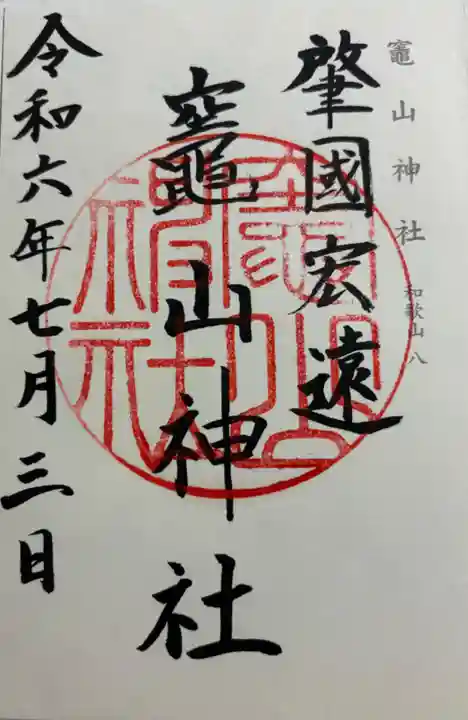 竈山神社
和歌山 八
肇國宏遠
竈山神社
令和六年七月三日
竈山神社